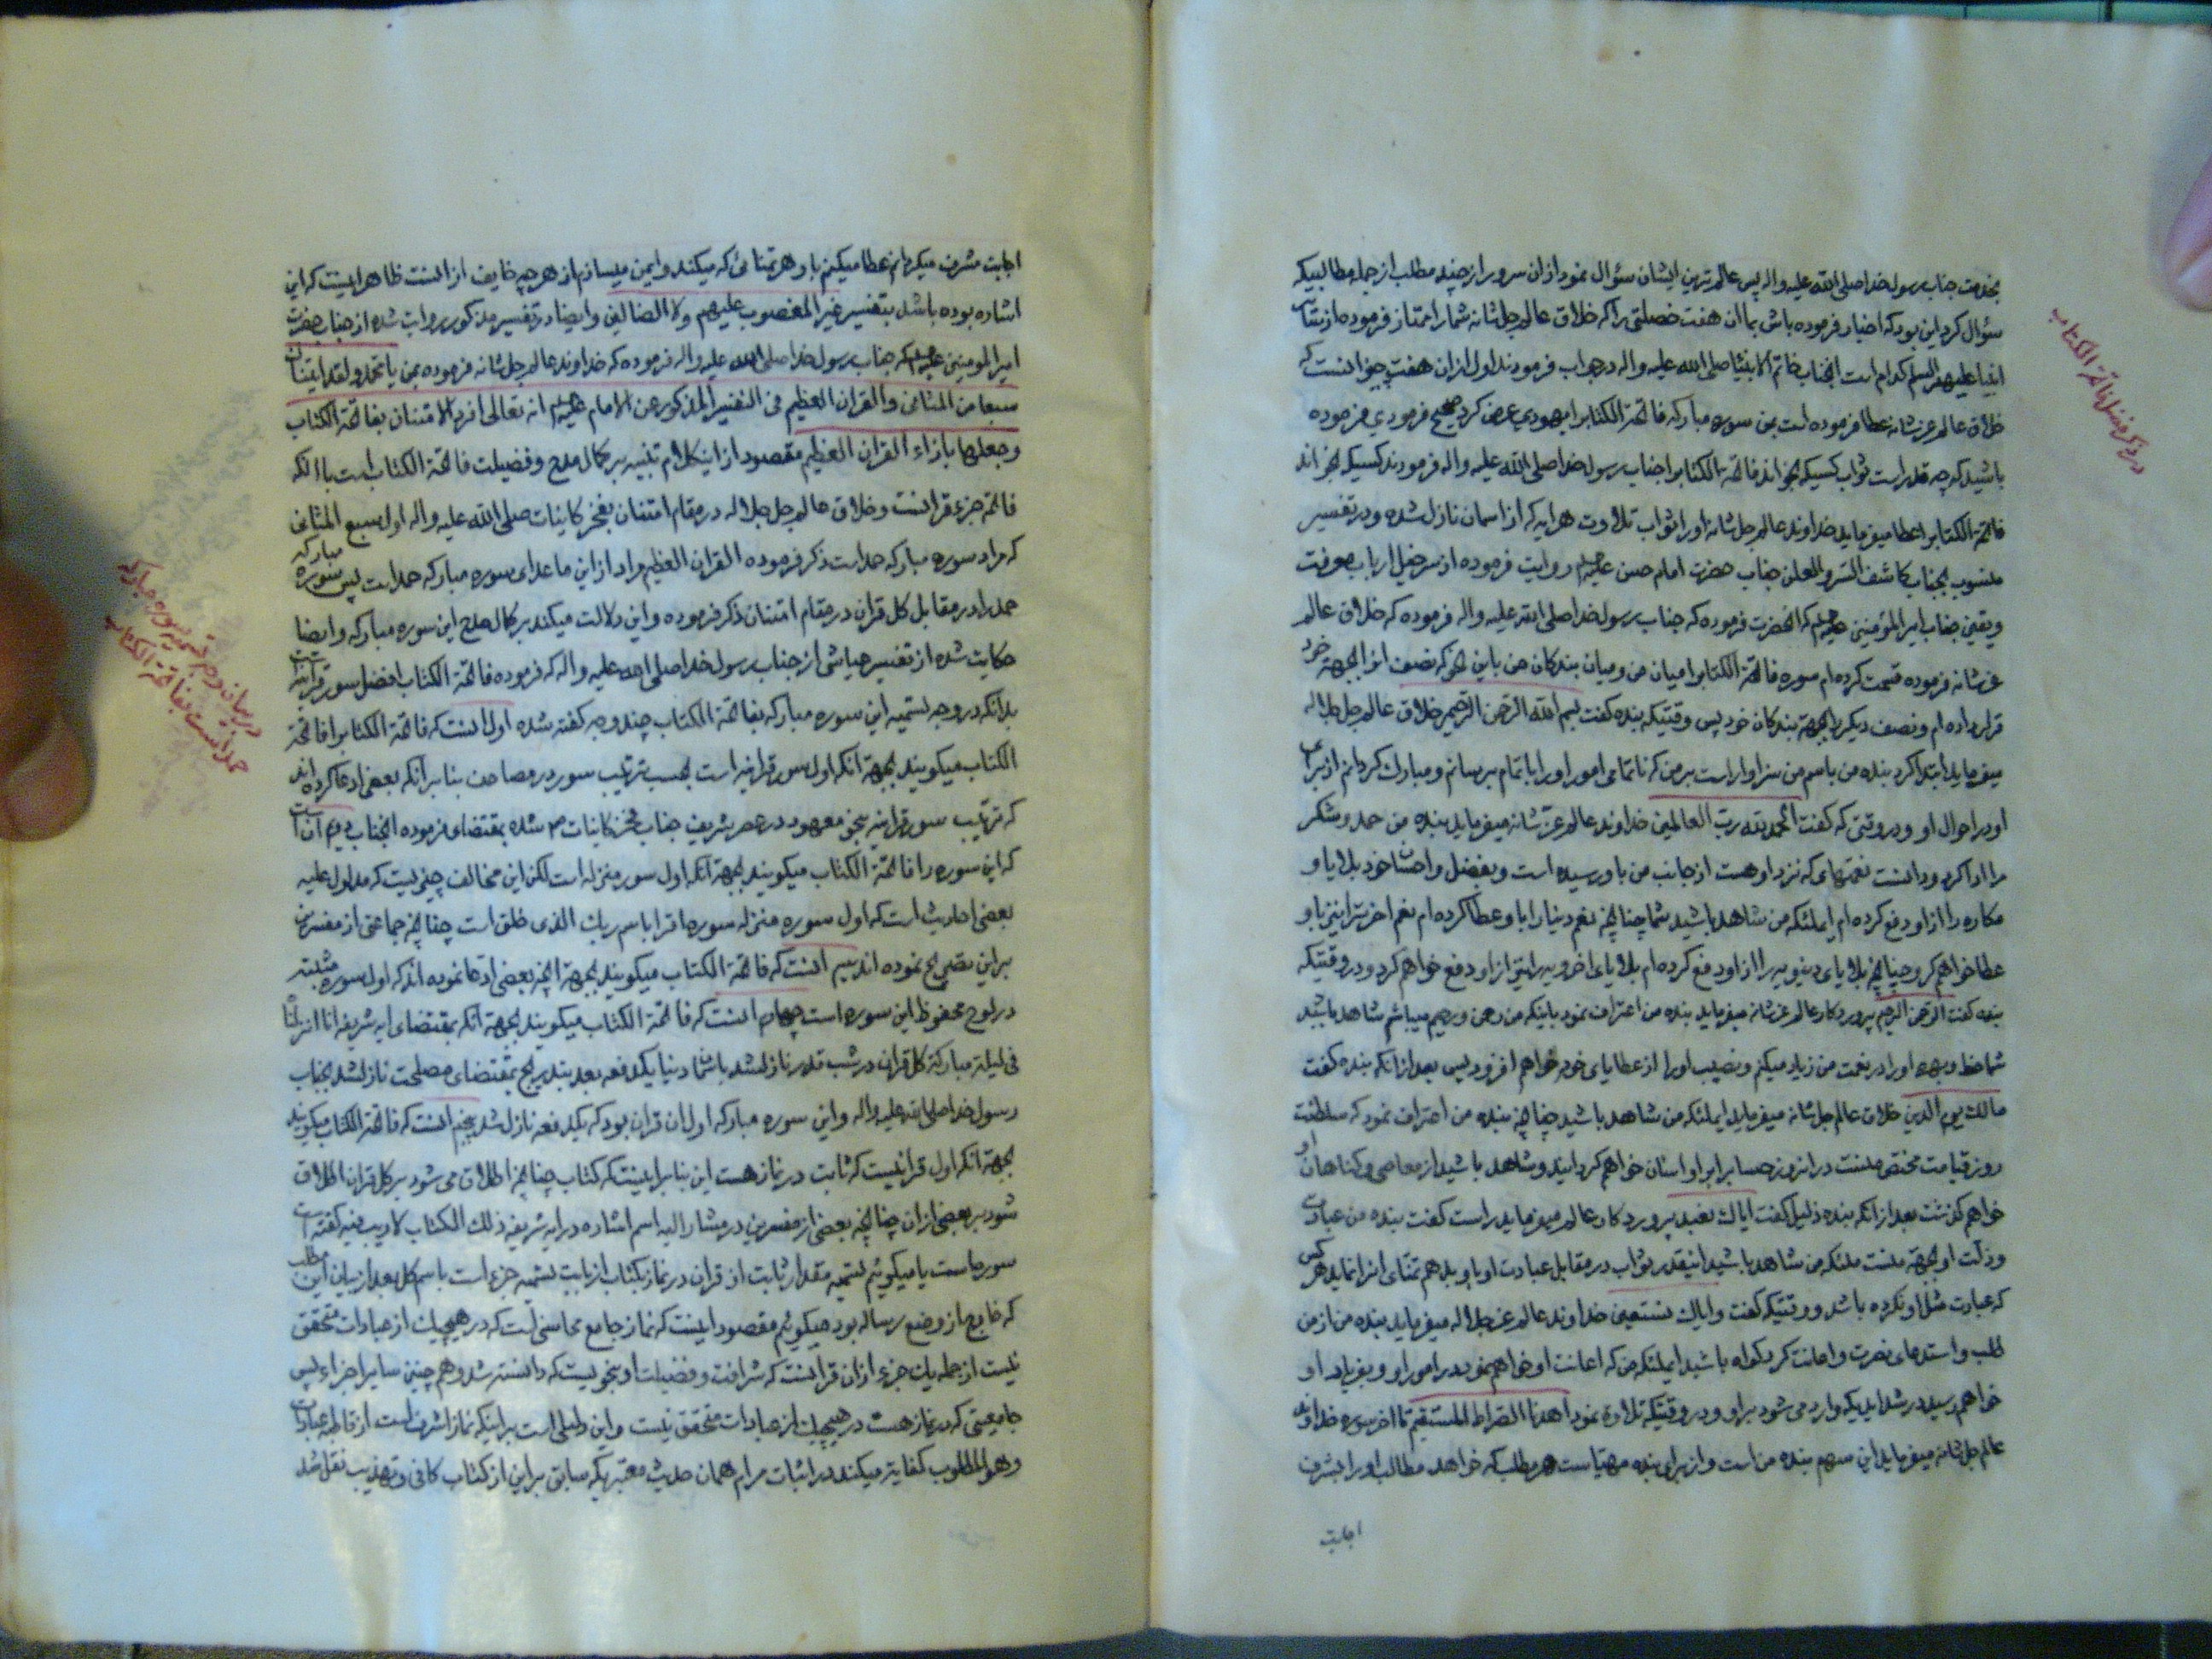 بخدمت جناب رسول خدا صلی الله علیه واله پس عالم ترین ایشان سؤال نمود از ان سرور از چند مطلب از جمله مطالبیکه
سؤال کرد این بود که اخبار فرموده باش بما ان هفت خصلتی را که خلاق عالم جل شانه شما را ممتاز فرموده از
انبیا علیهم السلم کدام است انجناب خاتم الانبیا صلی الله علیه واله در جواب فرمودند اول از ان هفت چیز انست که
خلاق عالم عز شانه عطا فرموده است بمن سوره مبارکه فاتحة الکتابرا یهودی عرض کرد صحیح فرمودی فرموده
باشید که چه قدر است ثواب کسیکه بخواند فاتحة الکتابرا جناب رسول خدا صلی الله علیه واله فرمودند کسیکه بخواند
فاتحة الکتابرا عطا میفرماید خداوند عالم جل شانه او را ثواب تلاوت هر ایه که از اسمان نازل شده و در تفسیر
منسوب بجناب کاشف السر والعلن جناب حضرت امام حسن علیه السلم روایت فرموده از سرخیل ارباب معرفت
و یقین جناب امیر المؤمنین علیه السلم که انحضرت فرموده که جناب رسول خدا صلی الله علیه واله فرموده که خلاق عالم
عز شانه فرموده قسمت کرده ام سوره فاتحة الکتابرا میان من و میان بندکان من باین نحو که نصف انرا بجهة خود
قرار داده ام و نصف دیکر را بجهة بندکان خود پس وقتیکه بنده کفت بسم الله الرحمن الرحیم خلاق عالم جل جلاله
میفرماید ابتدا کرد بنده من باسم من سزاوار است بر من که تا تمامی امور او را باتمام برسانم و مبارک کردانم از برای
او در احوال او و در وقتی که کفت الحمد لله رب العالمین خداوند عالم عز شانه میفرماید بنده من حمد و شکر
مرا ادا کرد و دانست نعمتهای که نزد او هست از جانب من باو رسیده است و بفضل و احسان خود بلایا و
مکاره را از او دفع کرده ام ای ملئکه من شاهد باشید شما چنانچه نعم دنیا را باو عطا کرده ام نعم اخرت را نیز باو
عطا خواهم کرد و چنانچه بلایای دنیویه را از او دفع کرده ام بلایای اخرویه را نیز از او دفع خواهم کرد و در وقتیکه
بنده کفت الرحمن الرحیم پروردکار عالم عز شانه میفرماید بنده من اعتراف نمود باینکه من رحمن و رحیم میباشم شاهد باشید
شما حظ و بهره او را در نعمت من زیاد میکنم و نصیب او را از عطایای خود خواهم افزود پس بعد از انکه بنده کفت
مالک یوم الدین خلاق عالم جل شانه میفرماید ای ملئکه من شاهد باشید چنانچه بنده من اعتراف نمود که سلطنت
روز قیامت مختص منست در انروز حساب را بر او اسان خواهم کردانید و شاهد باشید از معاصی و کناهان او
خواهم کذشت بعد از انکه بنده ذلیل کفت ایاک نعبد پروردکار عالم میفرماید راست کفت بنده من عبادت
و ذلت او بجهة منست ملئکه من شاهد باشید انقدر ثواب در مقابل عبادت او باو بدهم تمنای انرا نماید هر کس
که عبادت مثل او نکرده باشد و وقتیکه کفت وایاک نستعین خداوند عالم عز جلاله میفرماید بنده من از من
طلب و استدعای نصرت و اعانت کرد کواه باشید ای ملئکه من که اعانت او خواهم نمود در امور او و بفریاد او
خواهم رسید در شدایدیکه وارد می شود بر او و در وقتیکه تلاوة نمود اهدنا الصراط المستقیم تا اخر سوره خداوند
عالم جل شانه میفرماید این سهم بنده من است و از برای بنده مهیاست هر مطلب که خواهد مطالب او را بشرف
اجابت
در ذکر فضل فاتحة الکتاب
اجابت مشرف میکردانم عطا میکنم باو هر تمنائی که میکند و ایمن میسازم از هر چیز خایف از انست ظاهر اینست که این
اشاره بوده باشد بتفسیر غیر المغضوب علیهم ولا الضالین و ایضا در تفسیر مذکور روایت شده از جناب حضرت
امیر المومنین علیه السلم که جناب رسول خدا صلی الله علیه واله فرموده که خداوند عالم جل شانه فرموده بمن یا محمد ولقد اتیناک
سبعا من المثانی والقران العظیم فی التفسیر المذکور عن الامام علیه السلم انه تعالی افرد الامتنان بفاتحة الکتاب
وجعلها بازاء القران العظیم مقصود از اینکلام تنبیه بر کمال مدح و فضیلت فاتحة الکتاب است با انکه
فاتحه جزء قرانست و خلاق عالم جل جلاله در مقام امتنان بفخر کاینات صلی الله علیه واله اول سبع المثانی
که مراد سوره مبارکه حمد است ذکر فرموده القران العظیم مراد از این ما عدای سوره مبارکه حمد است پس سوره مبارکه
حمد را در مقابل کل قران در مقام امتنان ذکر فرموده و این دلالت میکند بر کمال مدح این سوره مبارکه و ایضا
حکایت شده از تفسیر عیاشی از جناب رسول خدا صلی الله علیه واله که فرموده فاتحة الکتاب افضل سور قرانیه است
بدانکه در وجه تسمیه این سوره مبارکه بفاتحة الکتاب چند وجه کفته شده اول انست که فاتحة الکتابرا فاتحة
الکتاب میکویند بجهة انکه اول سور قرانیه است بحسب ترتیب سور در مصاحف بنا بر انکه بعضی ادعا کرده اند
که ترتیب سور قرانیه بنحو معهود در عصر شریف جناب فخر کاینات ص شده بمقتضای فرموده انجناب دویم ان است
که این سوره را فاتحة الکتاب میکویند بجهة انکه اول سور منزله است لکن این مخالف چیزیست که مدلول علیه
بعضی احادیث است که اول سوره منزله سوره اقرا باسم ربک الذی خلق است چنانچه جماعتی از مفسرین
بر این تصریح نموده اند سیم انست که فاتحة الکتاب میکویند بجهة انچه بعضی ادعا نموده اند که اول سوره مثبته
در لوح محفوظ این سوره است چهارم انست که فاتحة الکتاب میکویند بجهة انکه بمقتضای ایه شریفه انا انزلناه
فی لیلة مبارکة کل قران در شب قدر نازل شد باسمان دنیا یکدفعه بعد بتدریج بمقتضای مصلحت نازل شد بجناب
رسول خدا صلی الله علیه واله و این سوره مبارکه اول ان قران بود که یکدفعه نازل شد پنجم انست که فاتحة الکتاب میکویند
بجهة انکه اول قرانیست که ثابت در نماز هست این بنا بر اینست که کتاب چنانچه اطلاق می شود بر کل قران اطلاق
شود بر بعضی از ان چنانچه بعضی از مفسرین در مشار الیه اسم اشاره در ایه شریفه ذلک الکتاب لا ریب فیه کفته است
سوره است یا میکوئیم تسمیه مقدار ثابت از قران در نماز بکتاب از بابت تسمیه جزء است باسم کل بعد از بیان این مطلب
که خارج از وضع رساله بود میکوئیم مقصود اینست که نماز جامع محاسنی است که در هیچیک از عبادات متحقق
نیست از جمله یک جزء از ان قرانست که شرافت و فضیلت او بنحویست که دانسته شد و هم چنین سایر اجزاء پس
جامعیتی که در نماز هست در هیچیک از عبادات متحقق نیست و این دلیلی است بر اینکه نماز اشرف است از قاطبه عبادات
وهو المطلوب کفایة میکند در اثبات مرام همان حدیث معتبریکه سابق بر این از کتاب کافی و تهذیب نقل شد
در بیان وجه تسمیه سوره مبارکه
حمد است بفاتحة الکتاب